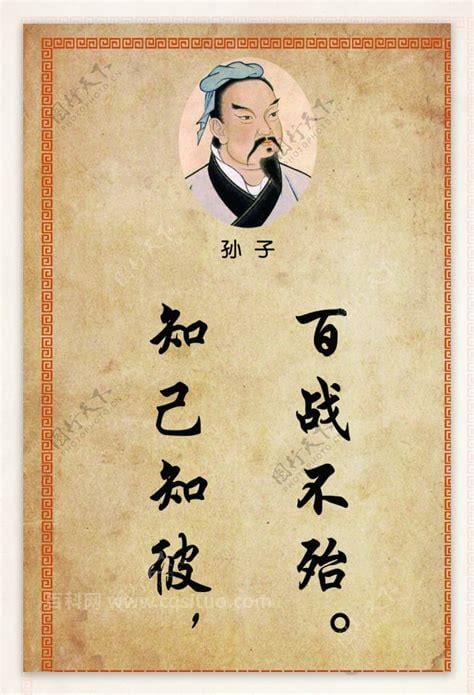 孙子
知己知彼，
百战不殆。
百科网 www.cqsltuo.com
图行天下
PHOTOPHOTO.CN